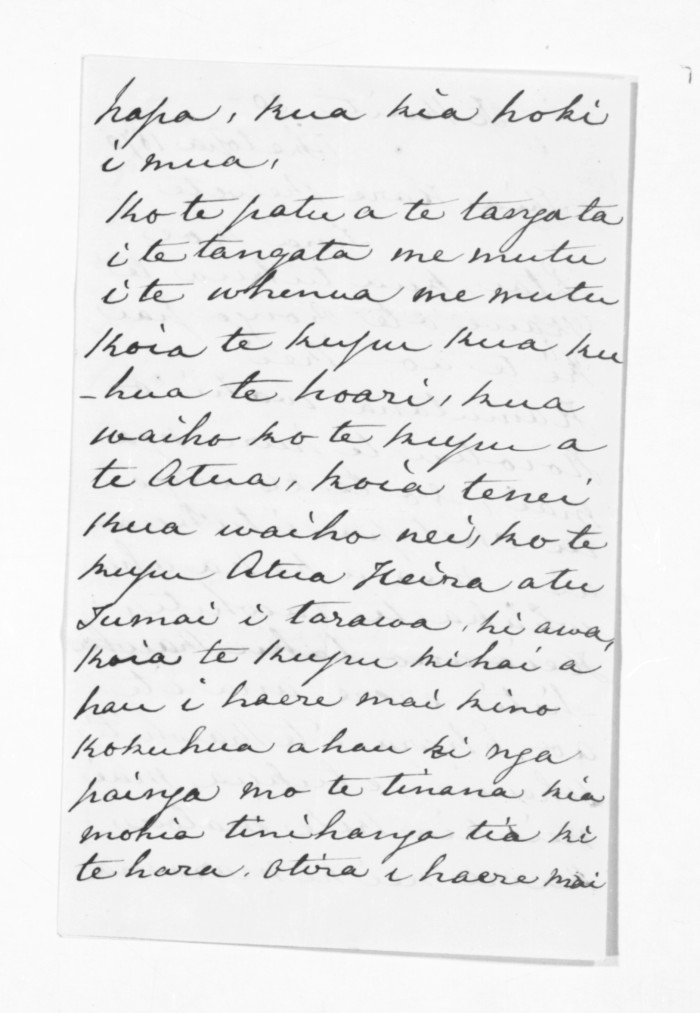 hapa, kua kia hoki
i mua,
Ko te patu a te tangata
i te tangata me mutu
i te whenua me mutu
Koia te kupu kua ku
-hua te hoari, kua
waiho ko te kupu a
te Atua, koia tenei
kua waiho nei, ko te
kupu Atua Heira atu
Tumai i tarawa. ki awa,
Koia te kupu kihai a
hau i haere mai kino
kokuhua ahau ki nga
painga mo te tinana kia
mohia tinihanga tia ki
te hara. otira i haere mai